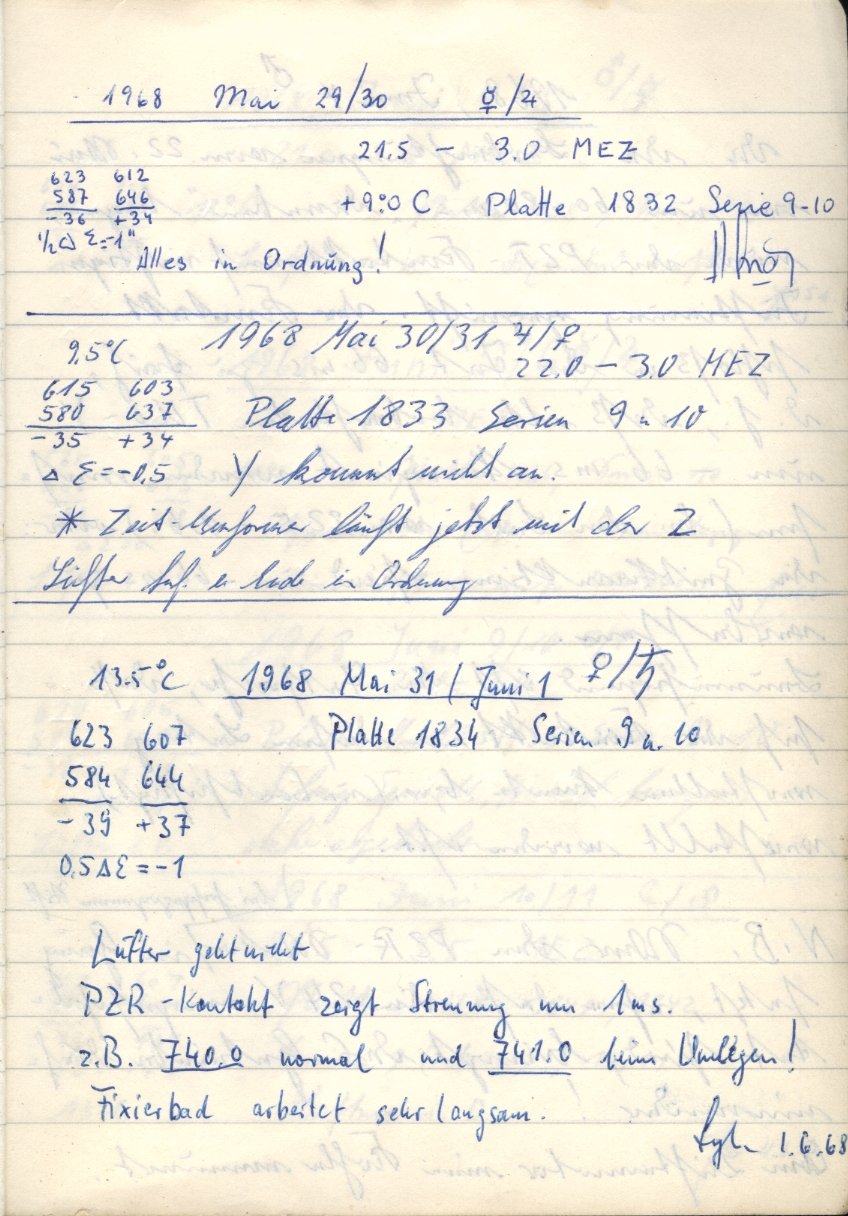 1968 Mai 29/30 ☿/♃
21.5 — 3.0 MEZ
623 612
587 646
-36 +34
+9°.0 C Platte 1832 Serie 9-10
½ΔΣ=-1"
Alles in Ordnung!
1968 Mai 30/31 ♃/♀
9.5°C
22.0 — 3.0 MEZ
615 603
580 637
-35 +34
Platte 1833 Serien 9 u 10
ΔΣ=-0.5 Y kommt nicht an.
* Zeit-Umformer läuft jetzt mit der Z
Lüfter in Ordnung
13.5°C 1968 Mai 31/Juni 1 ♀/♄
623 607 Platte 1834 Serien 9 u. 10
584 644
-39 +37
0.5ΔΣ=-1
Lüfter geht nicht
PZR-Kontakt zeigt Streuung um 1ms.
z.B. 740.0 normal und 741.0 beim Umlegen!
Fixierbad arbeitet sehr langsam.
1.6.68